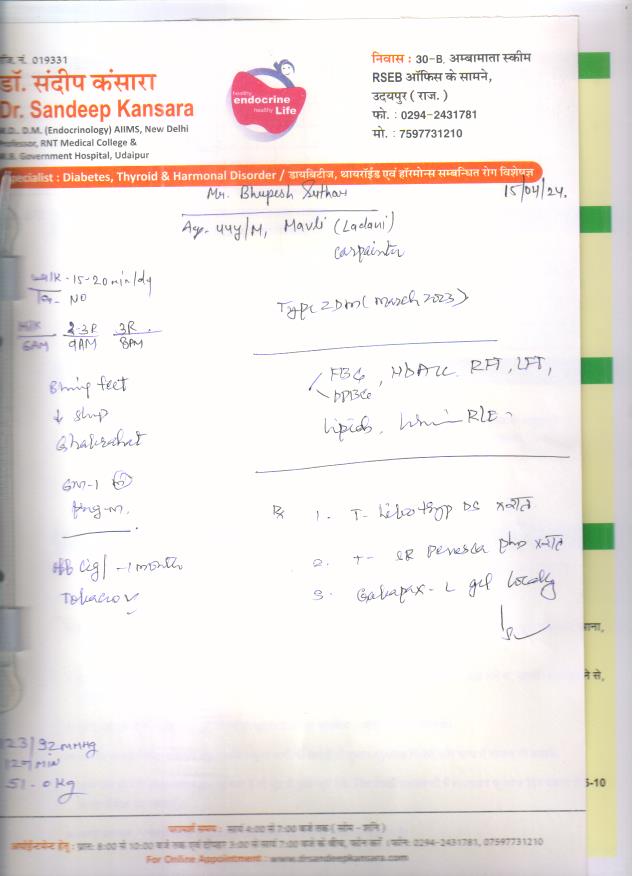 जि. नं. 019331
डॉ. संदीप कंसारा
Dr. Sandeep Kansara
M.D., D.M. (Endocrinology) AIIMS, New Delhi
Professor, RNT Medical College &
M.B. Government Hospital, Udaipur
healthy
endocrine
healthy Life
निवास : 30-B, अम्बामाता स्कीम
RSEB ऑफिस के सामने,
उदयपुर ( राज. )
फो. : 0294-2431781
मो. : 7597731210
Specialist : Diabetes, Thyroid & Harmonal Disorder / डायबिटीज, थायरॉईड एवं हॉरमोन्स सम्बन्धित रोग विशेषज्ञ
Mr. Bhupesh Suthar 15/04/24.
Age- 44y/M, Mavli (Ladani)
Carpainter
Walk - 15-20 min/day
NO
Type 2 DM (March 2023)
Milk 2-3R 3R
6AM 9AM 8PM
FBG, HbA1c RFT, LFT,
PPBG
Lipids, RLE
feet
↓ slup
Ghabrahat
GM-1
Rx 1. T-
2. T- SR
3. Gabapax - L gel locally
off Cig/ -1 month
Tobacco
ाना,
ने से,
5-10
123/92 mmHg
51.0 Kg
परामर्श समय : सायं 4:00 से 7:00 बजे तक ( सोम - शनि )
अपॉईन्टमेन्ट हेतु : प्रातः 8:00 से 10:00 बजे तक एवं दोपहर 3:00 से सायं 7:00 बजे के बीच, फोन करें । फोन: 0294-2431781, 07597731210
For Online Appointment : www.drsandeepkansara.com